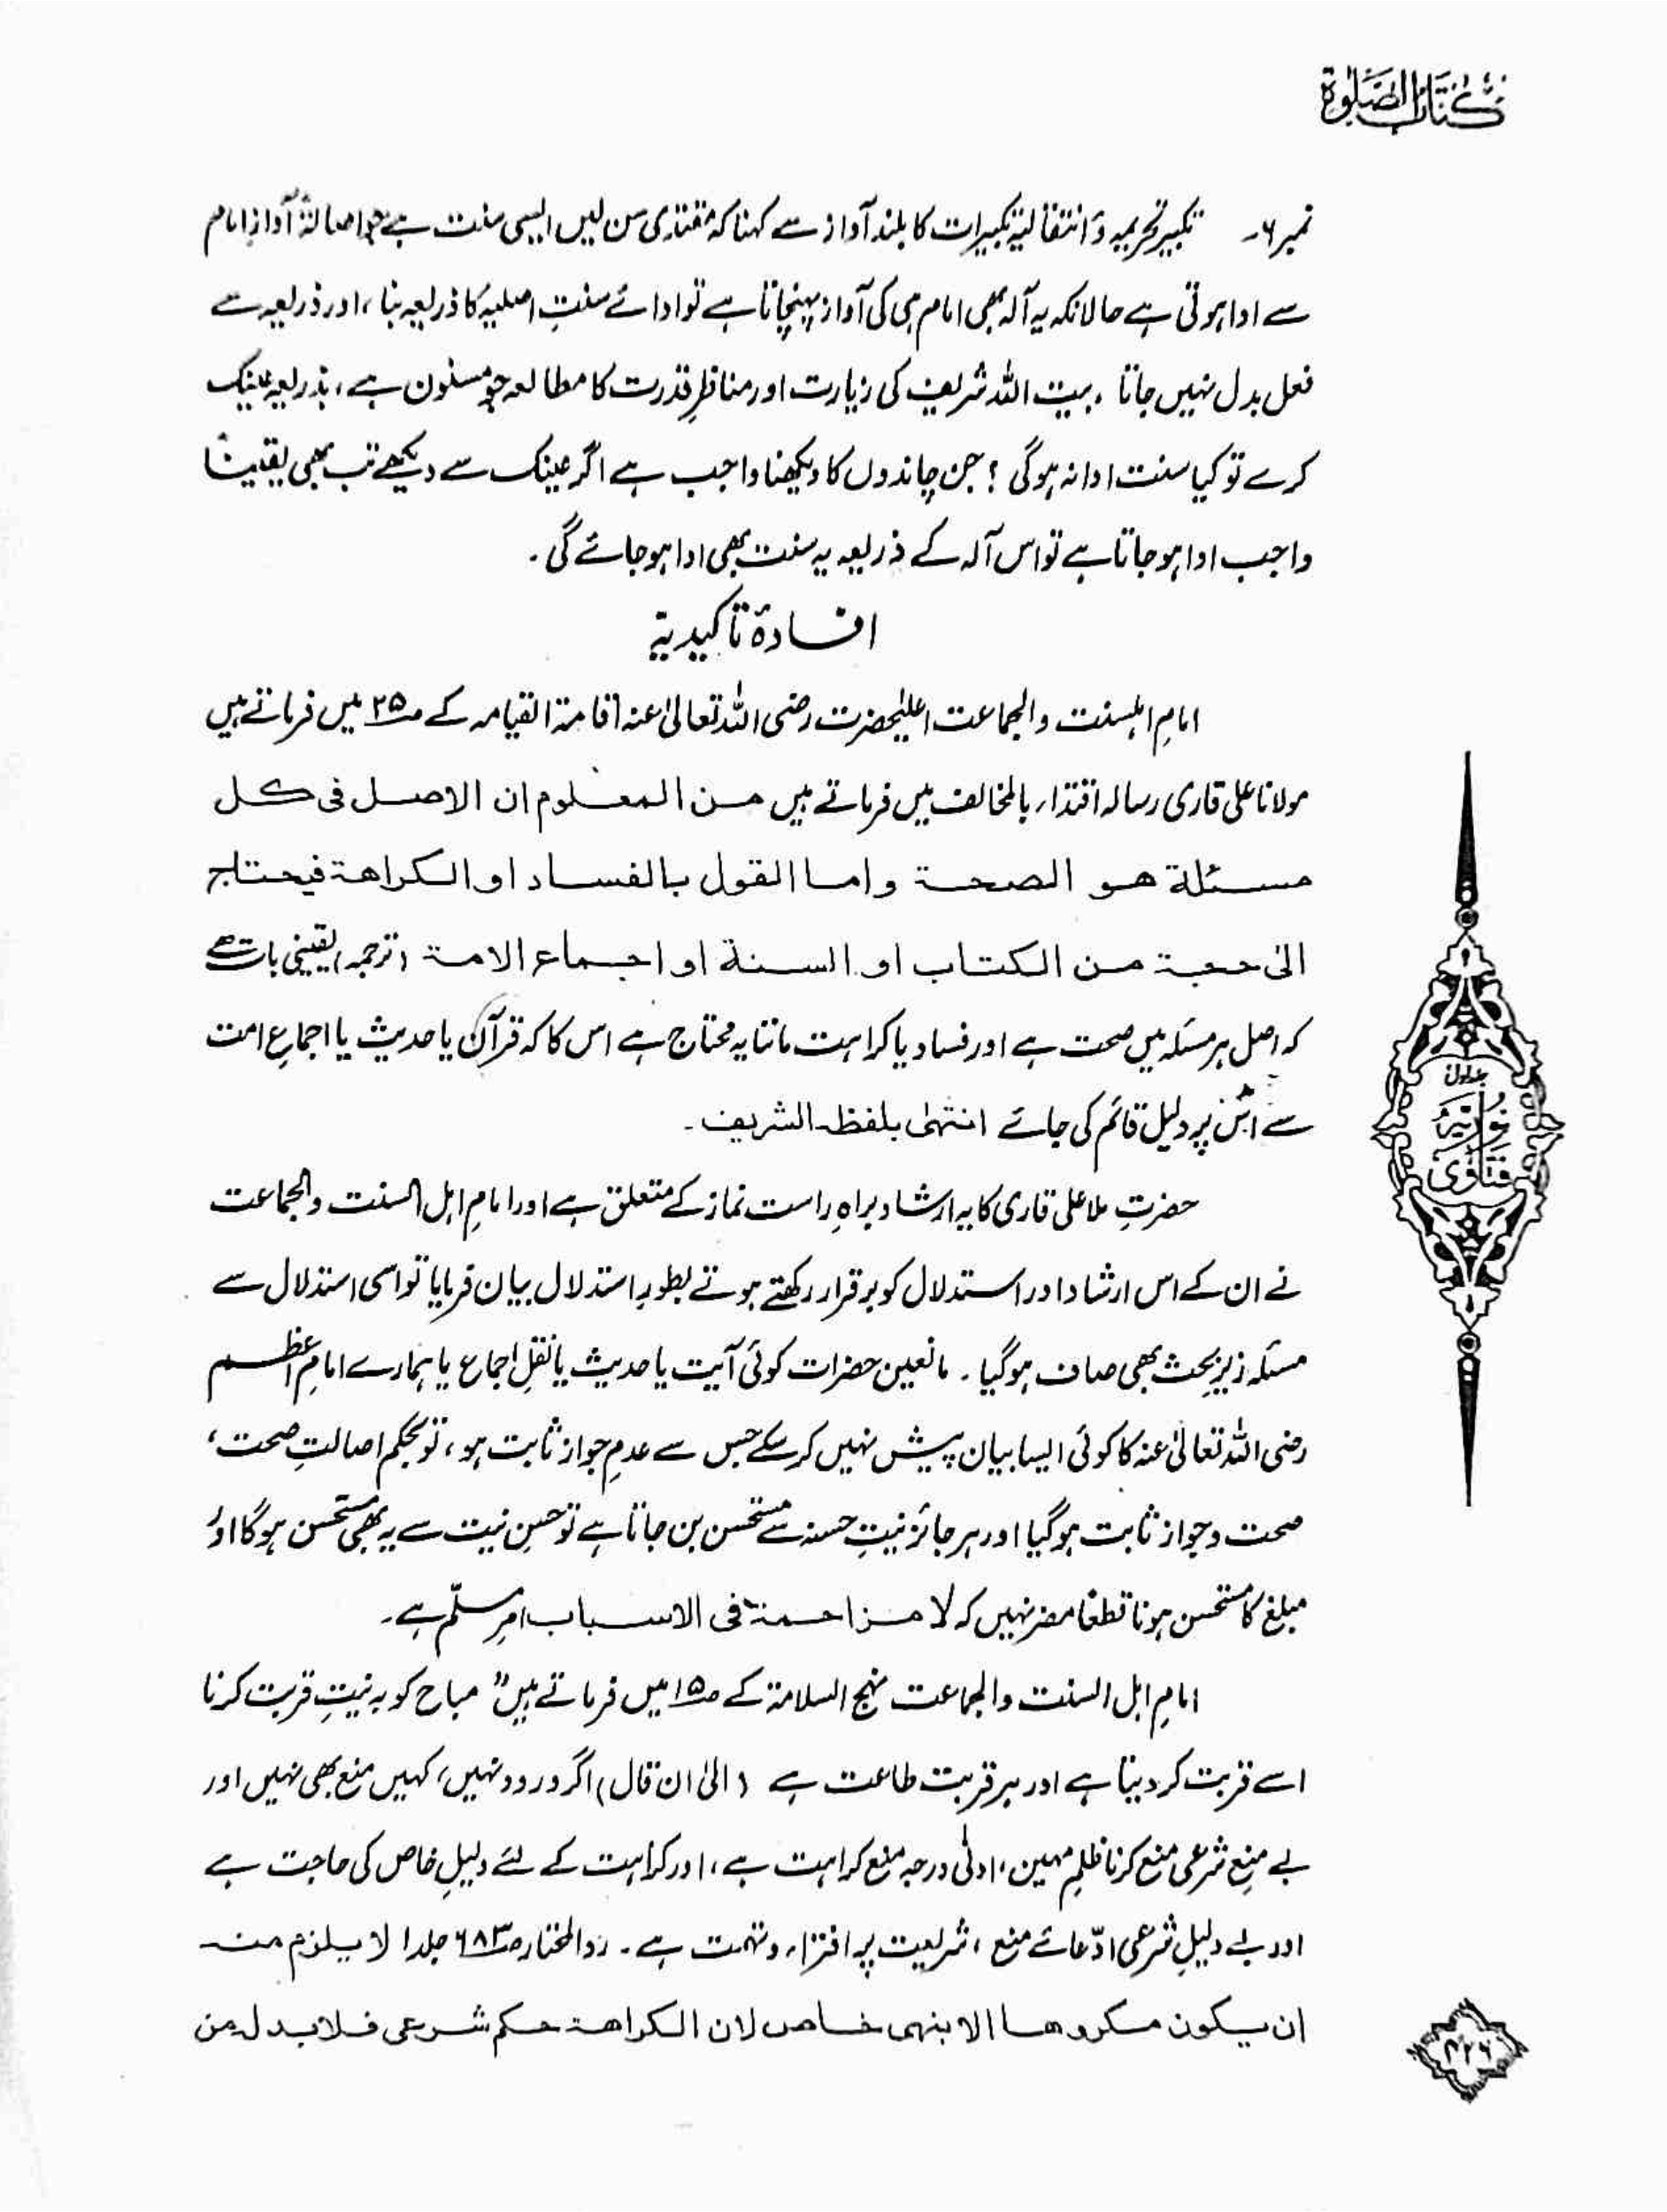 کتاب الصلوٰۃ
نمبر ۶۔ تکبیرِ تحریمہ و انتقالیہ تکبیرات کا بلند آواز سے کہنا کہ مقتدی سن لیں ایسی سنت ہے جو اصالۃً آوازِ امام
سے ادا ہوتی ہے حالانکہ یہ آلہ بھی امام ہی کی آواز پہنچاتا ہے تو ادائے سنتِ اصلیہ کا ذریعہ بنا ، اور ذریعہ سے
فعل بدل نہیں جاتا ، بیت اللہ شریف کی زیارت اور مناظرِ قدرت کا مطالعہ جو مسنون ہے ، بذریعہ عینک
کرے تو کیا سنت ادا نہ ہوگی ؟ جن چاندوں کا دیکھنا واجب ہے اگر عینک سے دیکھے تب بھی یقیناً
واجب ادا ہو جاتا ہے تو اس آلہ کے ذریعہ یہ سنت بھی ادا ہو جائے گی ۔
افادۃ تاکیدیۃ
امامِ اہلسنت والجماعت اعلیٰحضرت رضی اللہ تعالیٰ عنہ اقامۃ القیامہ کے صـ۲۵ میں فرماتے ہیں
مولانا علی قاری رسالہ اقتداء بالمخالف میں فرماتے ہیں من المعلوم ان الاصل فی کل
مسئلة هو الصحة واما القول بالفساد او الکراهة فیحتاج
الیٰ حجة من الکتاب او السنة او اجماع الامة (ترجمہ) یقینی بات ہے
کہ اصل ہر مسئلہ میں صحت ہے اور فساد یا کراہت ماننا یہ محتاج ہے اس کا کہ قرآن یا حدیث یا اجماعِ امت
سے اس پر دلیل قائم کی جائے انتہیٰ بلفظہ الشریف ۔
حضرتِ ملا علی قاری کا یہ ارشاد براہِ راست نماز کے متعلق ہے اور امامِ اہل السنت والجماعت
نے ان کے اس ارشاد اور استدلال کو برقرار رکھتے ہوتے بطورِ استدلال بیان فرمایا تو اسی استدلال سے
مسئلہ زیرِ بحث بھی صاف ہوگیا ۔ مانعین حضرات کوئی آیت یا حدیث یا نقلِ اجماع یا ہمارے امامِ اعظم
رضی اللہ تعالیٰ عنہ کا کوئی ایسا بیان پیش نہیں کر سکے جس سے عدمِ جواز ثابت ہو ، تو بحکم اصالتِ صحت ،
صحت و جواز ثابت ہوگیا اور ہر جائز نیتِ حسنہ سے مستحسن بن جاتا ہے تو حسنِ نیت سے یہ بھی مستحسن ہوگا اور
مبلغ کا مستحسن ہونا قطعاً مضر نہیں کہ لا مزاحمة فی الاسباب امرِ مسلّم ہے ۔
امامِ اہل السنت والجماعت منہج السلامۃ کے صـ۱۵ میں فرماتے ہیں " مباح کو بہ نیتِ قربت کرنا
اسے قربت کر دیتا ہے اور ہر قربت طاعت ہے (الیٰ ان قال) اگر ورود نہیں ، کہیں منع بھی نہیں اور
بے منعِ شرعی منع کرنا ظلمِ مہین ، ادنیٰ درجہ منع کراہت ہے ، اور کراہت کے لئے دلیلِ خاص کی حاجت ہے
اور بے دلیلِ شرعی ادّعائے منع ، شریعت پر افتراء و تہمت ہے ۔ ردالمختار صـ۶۸۳ جلد۱ لا یلزم منه
ان یکون مکروها الا بنهی خاص لان الکراهة حکم شرعی فلا بد له من
جلد اول
فتاویٰ نوریہ
۴۲۶